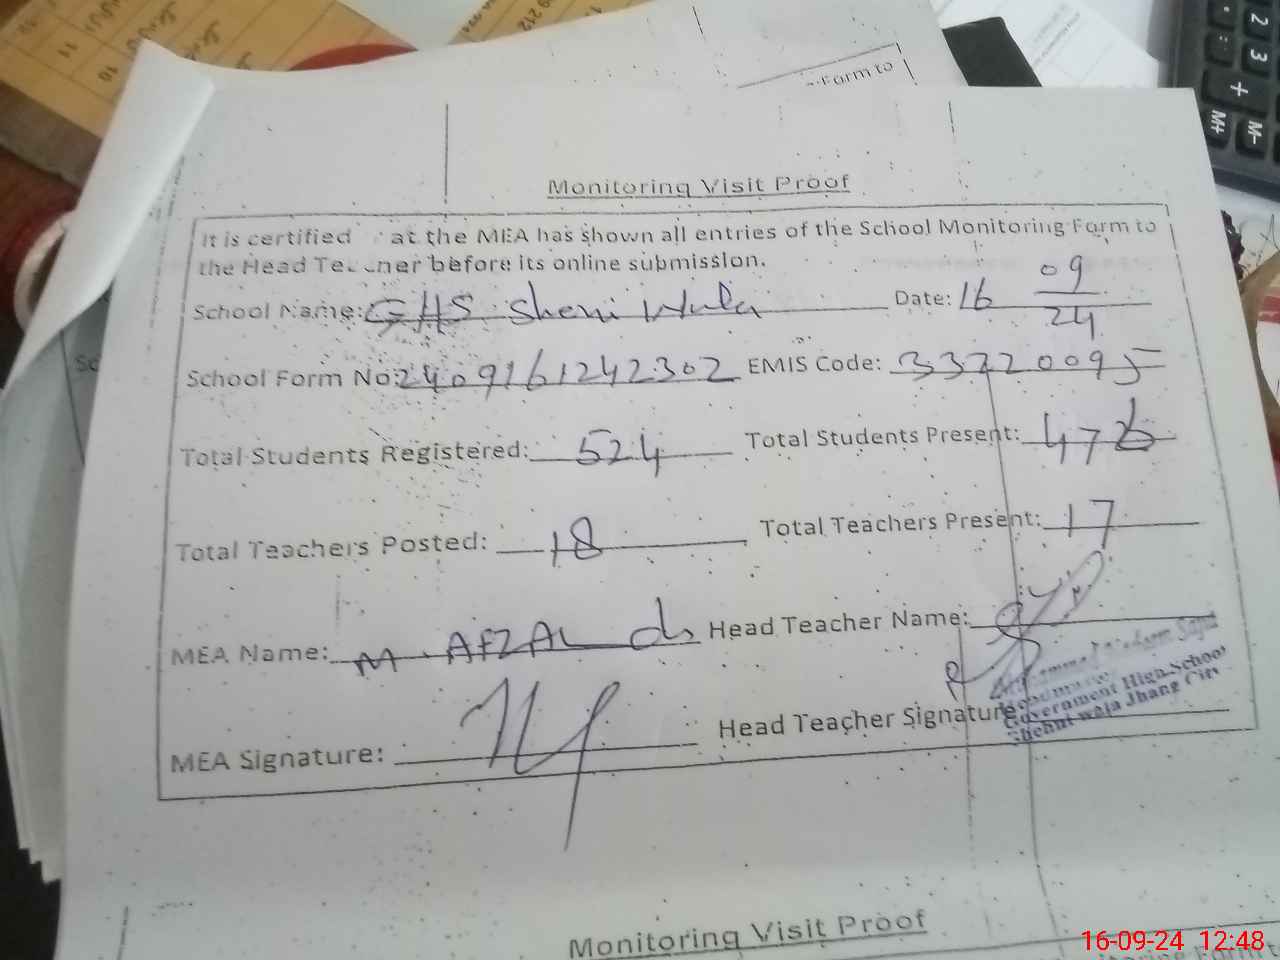 Form to
Monitoring Visit Proof
It is certified at the MEA has shown all entries of the School Monitoring Form to
the Head before its online submission.
School Name: GHS Date: 16 09/24
School Form No: 2409161242302 EMIS Code: 33220095
Total Students Registered: 524 Total Students Present: 476
Total Teachers Posted: 18 Total Teachers Present: 17
MEA Name: M. AFZAL Head Teacher Name:
MEA Signature: Head Teacher Signature
Government High School
Jhang City
Monitoring Visit Proof
16-09-24 12:48
2 3 +
M- M+
11
10